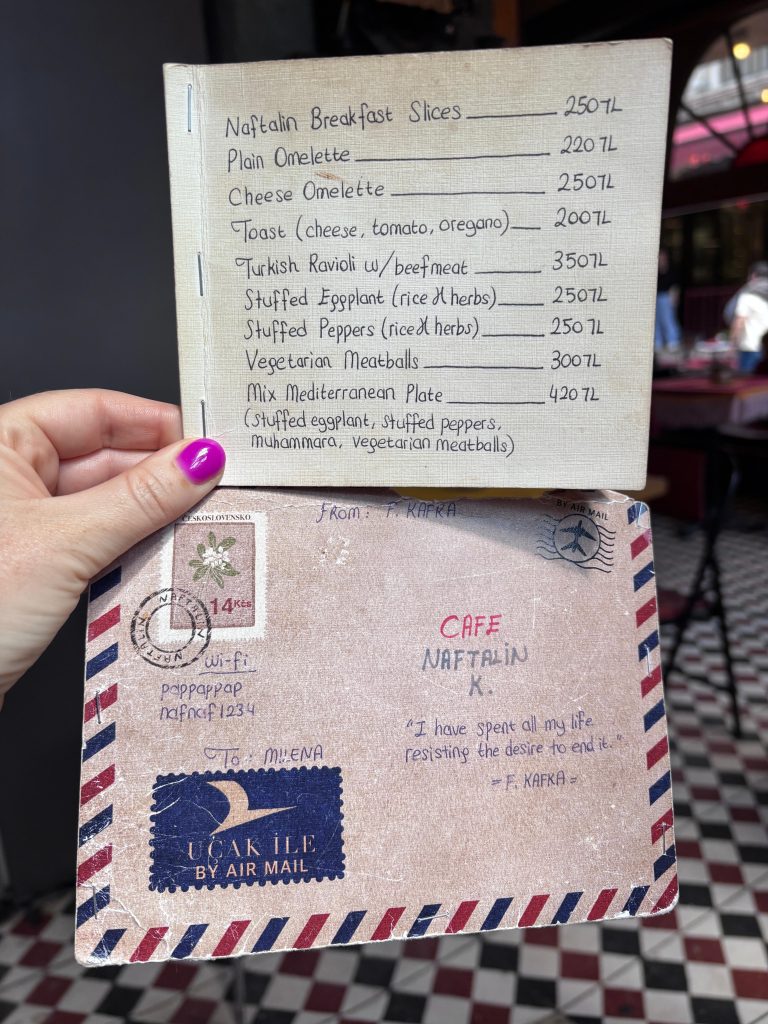 Naftalin Breakfast Slices 250TL
Plain Omelette 220TL
Cheese Omelette 250TL
Toast (cheese, tomato, oregano) 200TL
Turkish Ravioli w/beefmeat 350TL
Stuffed Eggplant (rice & herbs) 250TL
Stuffed Peppers (rice & herbs) 250TL
Vegetarian Meatballs 300TL
Mix Mediterranean Plate 420TL
(stuffed eggplant, stuffed peppers,
muhammara, vegetarian meatballs)
ČESKOSLOVENSKO
14Kčs
NAFTALIN
NAFTALIN
From: F. KAFKA
BY AIR MAIL
CAFE
NAFTALIN
K.
Wi-fi
pappappap
nafnaf1234
"I have spent all my life
resisting the desire to end it."
= F. KAFKA =
To: MILENA
UÇAK İLE
BY AIR MAIL